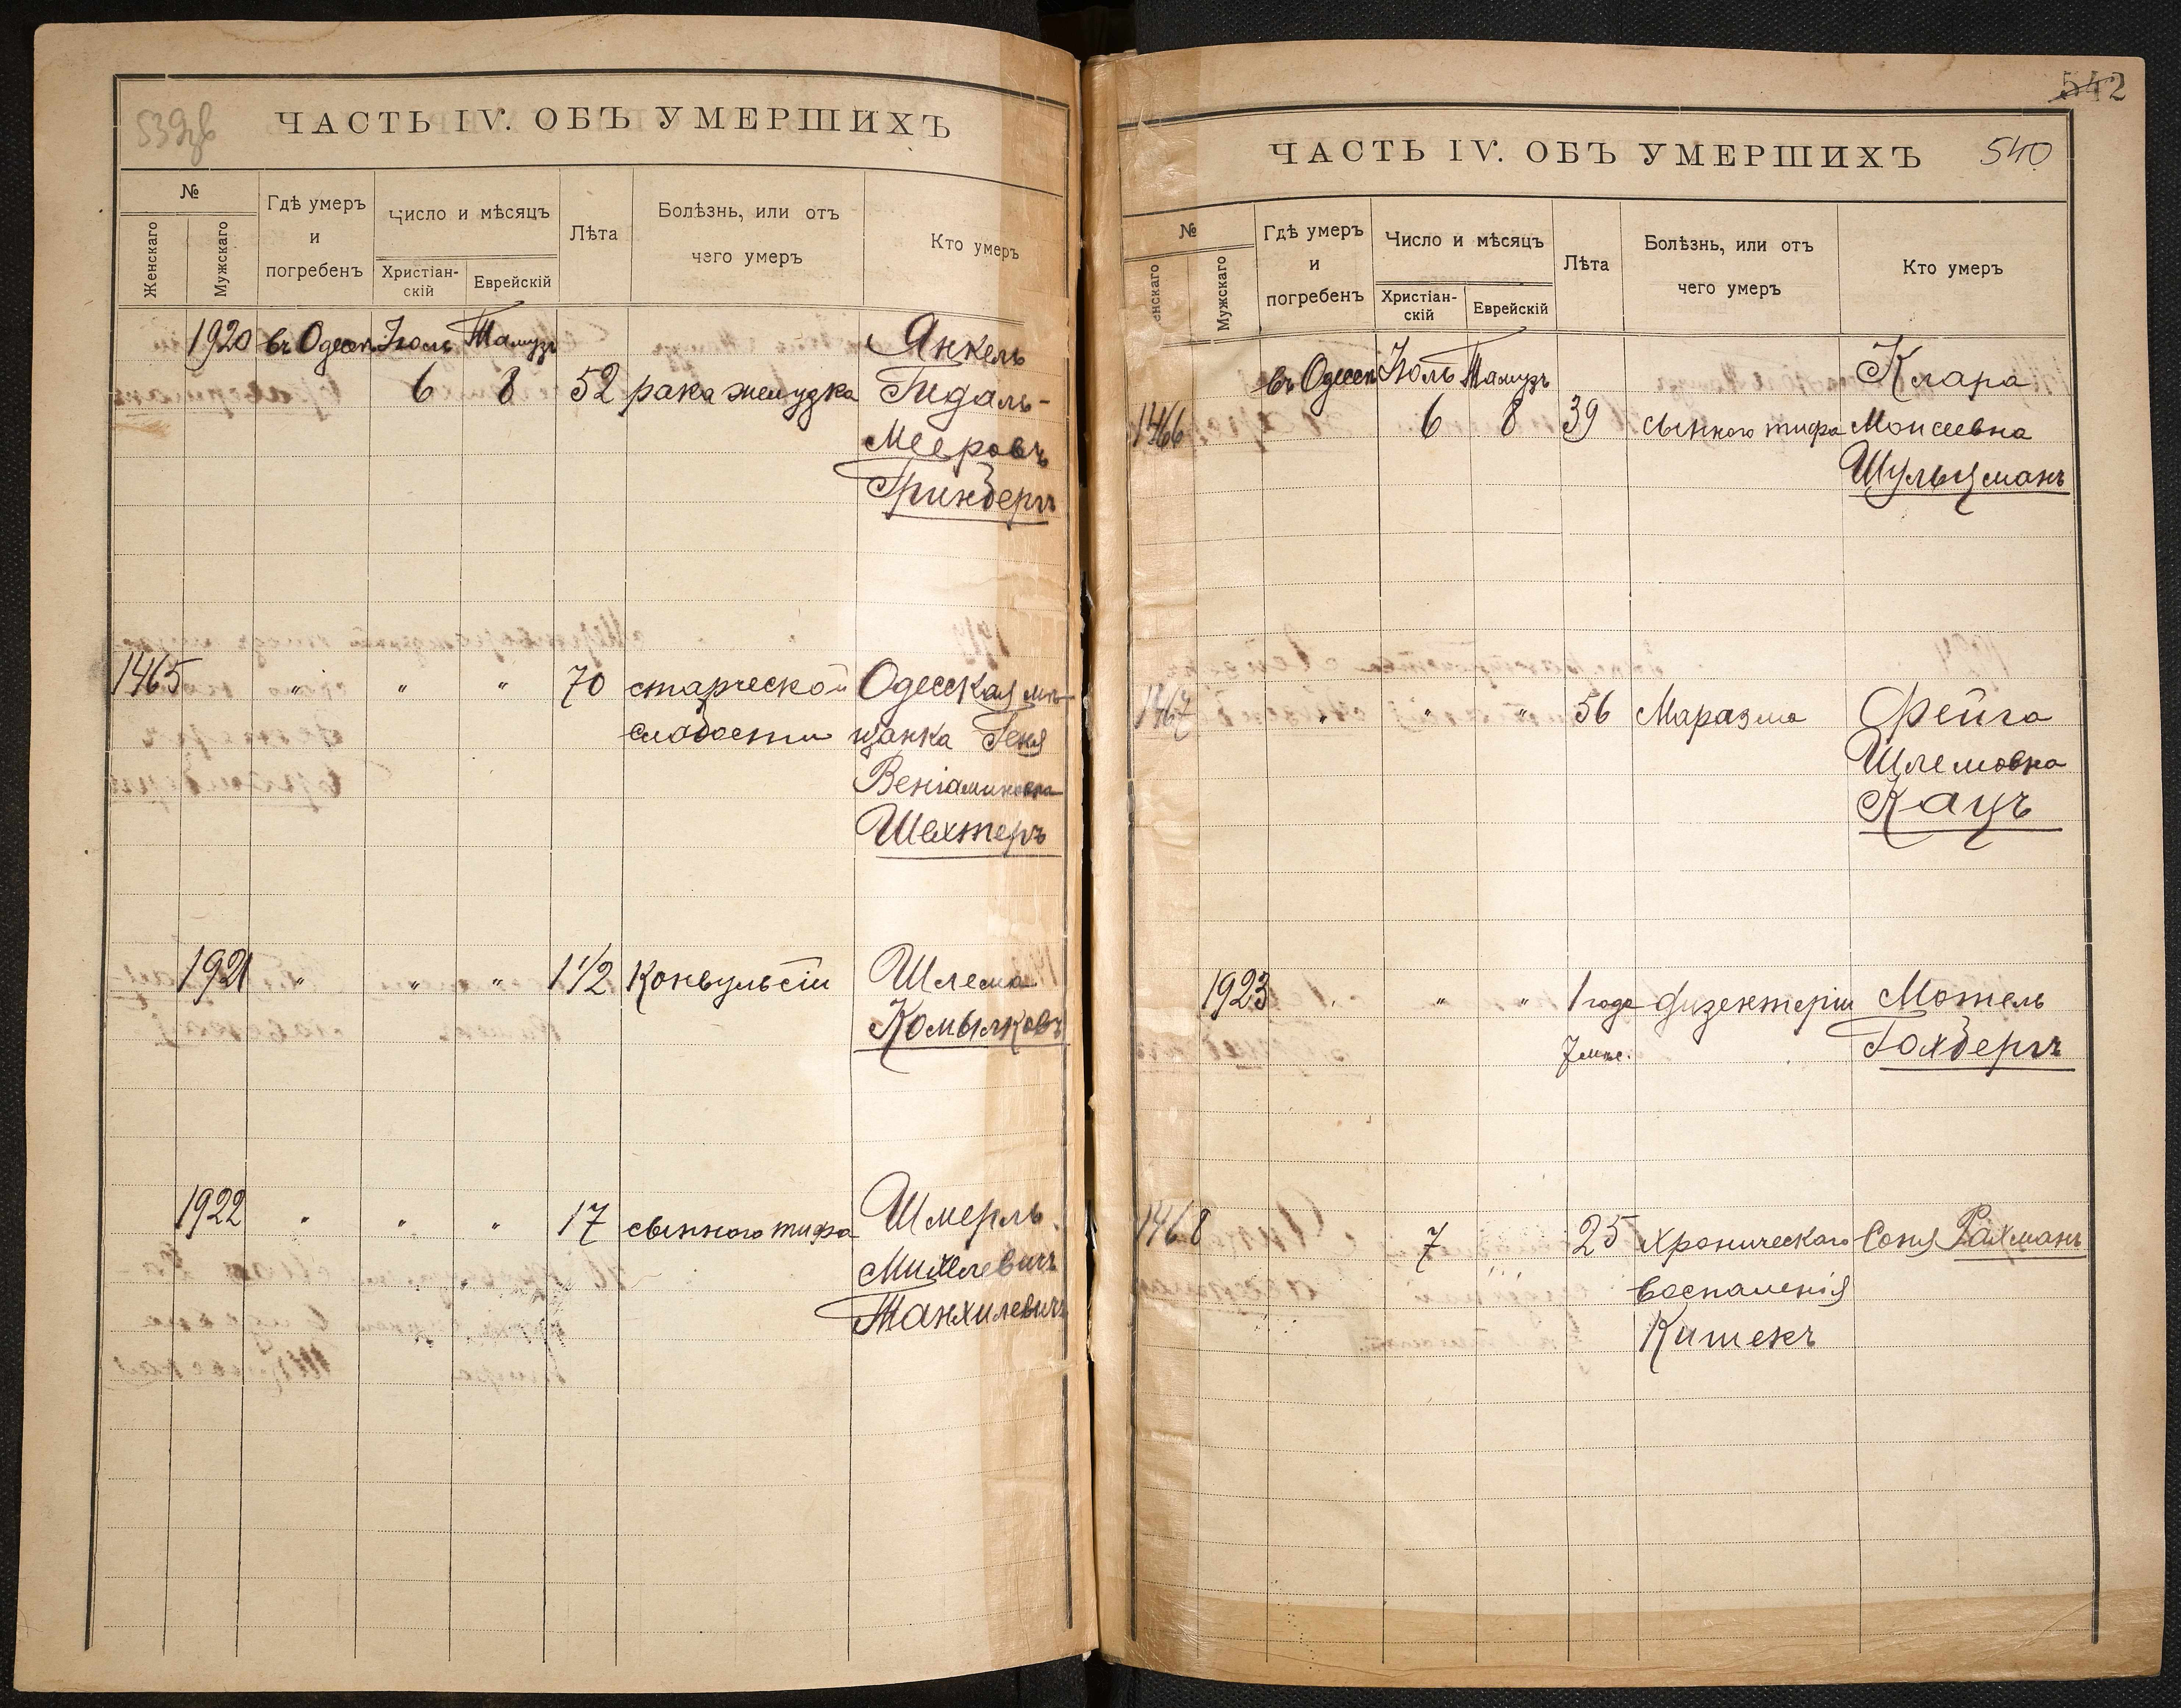 539об
ЧАСТЬ IV. ОБЪ УМЕРШИХЪ
№
Женскаго
Мужскаго
Гдѣ умеръ
и
погребенъ
Число и мѣсяцъ
Христіан-
скій
Еврейскій
Лѣта
Болѣзнь, или отъ
чего умеръ
Кто умеръ
1920 въ Одессѣ Іюль Тамузъ Янкель
6 8 52 рака желудка Гидаль-
Мееровъ
Гринбергъ
1465 " " " 70 старческой Одесская мѣ-
слабости щанка Геня
Веніаминовна
Шехтеръ
1921 " " " 1 1/2 Конвульсіи Шлема
Комылковъ
1922 " " " 17 сыпного тифа Шмерль
Михелевичъ
Танхилевичъ
542
ЧАСТЬ IV. ОБЪ УМЕРШИХЪ 540
№
енскаго
Мужскаго
Гдѣ умеръ
и
погребенъ
Число и мѣсяцъ
Христіан-
скій
Еврейскій
Лѣта
Болѣзнь, или отъ
чего умеръ
Кто умеръ
въ Одессѣ Іюль Тамузъ Клара
1466 6 8 39 сыпного тифа Моисеевна
Шульцманъ
1467 " " " 56 Маразма Фейга
Шлемовна
Кацъ
1923 " " " 1 года дизентеріи Мотель
7 мѣс. Гохбергъ
1468 7 25 хроническаго Соня Рахманъ
воспаленія
Кишекъ